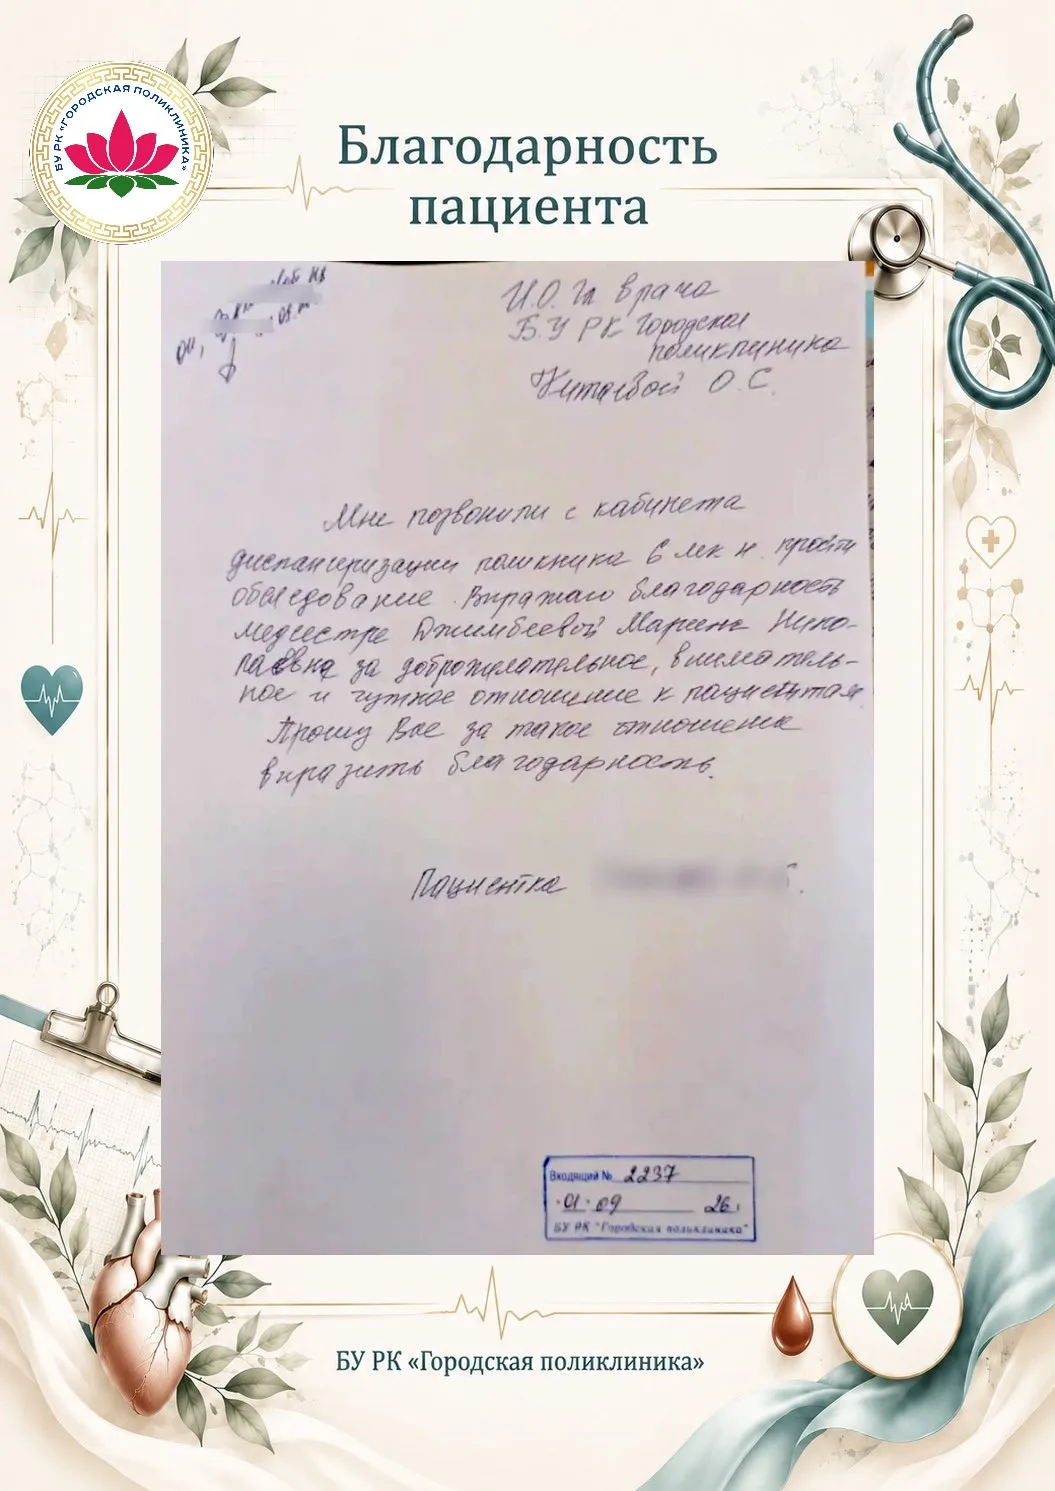 БУ РК «ГОРОДСКАЯ ПОЛИКЛИНИКА»
Благодарность
пациента
И.О. Гл врача
Б.У РК Городская
поликлиника
О.С.
Мне позвонили с кабинета
диспансеризации поликника 6 мк н. пройти
обследование. Выражаю благодарность
медсестре Джимбеевой Марине Нико-
лаевне за доброжелательное, вниматель-
ное и чуткое отношение к пациентам.
Прошу Вас за такое отношение
выразить благодарность.
Пациентка
Входящий № 2237
01 09 26
БУ РК "Городская поликлиника"
БУ РК «Городская поликлиника»